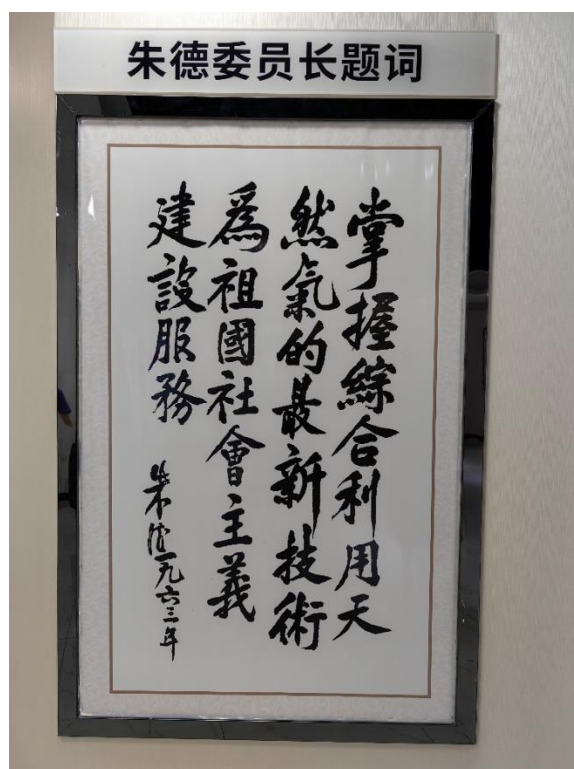 朱德委员长题词
掌握綜合利用天
然氣的最新技術
為祖國社會主義
建設服務
朱德一九六三年